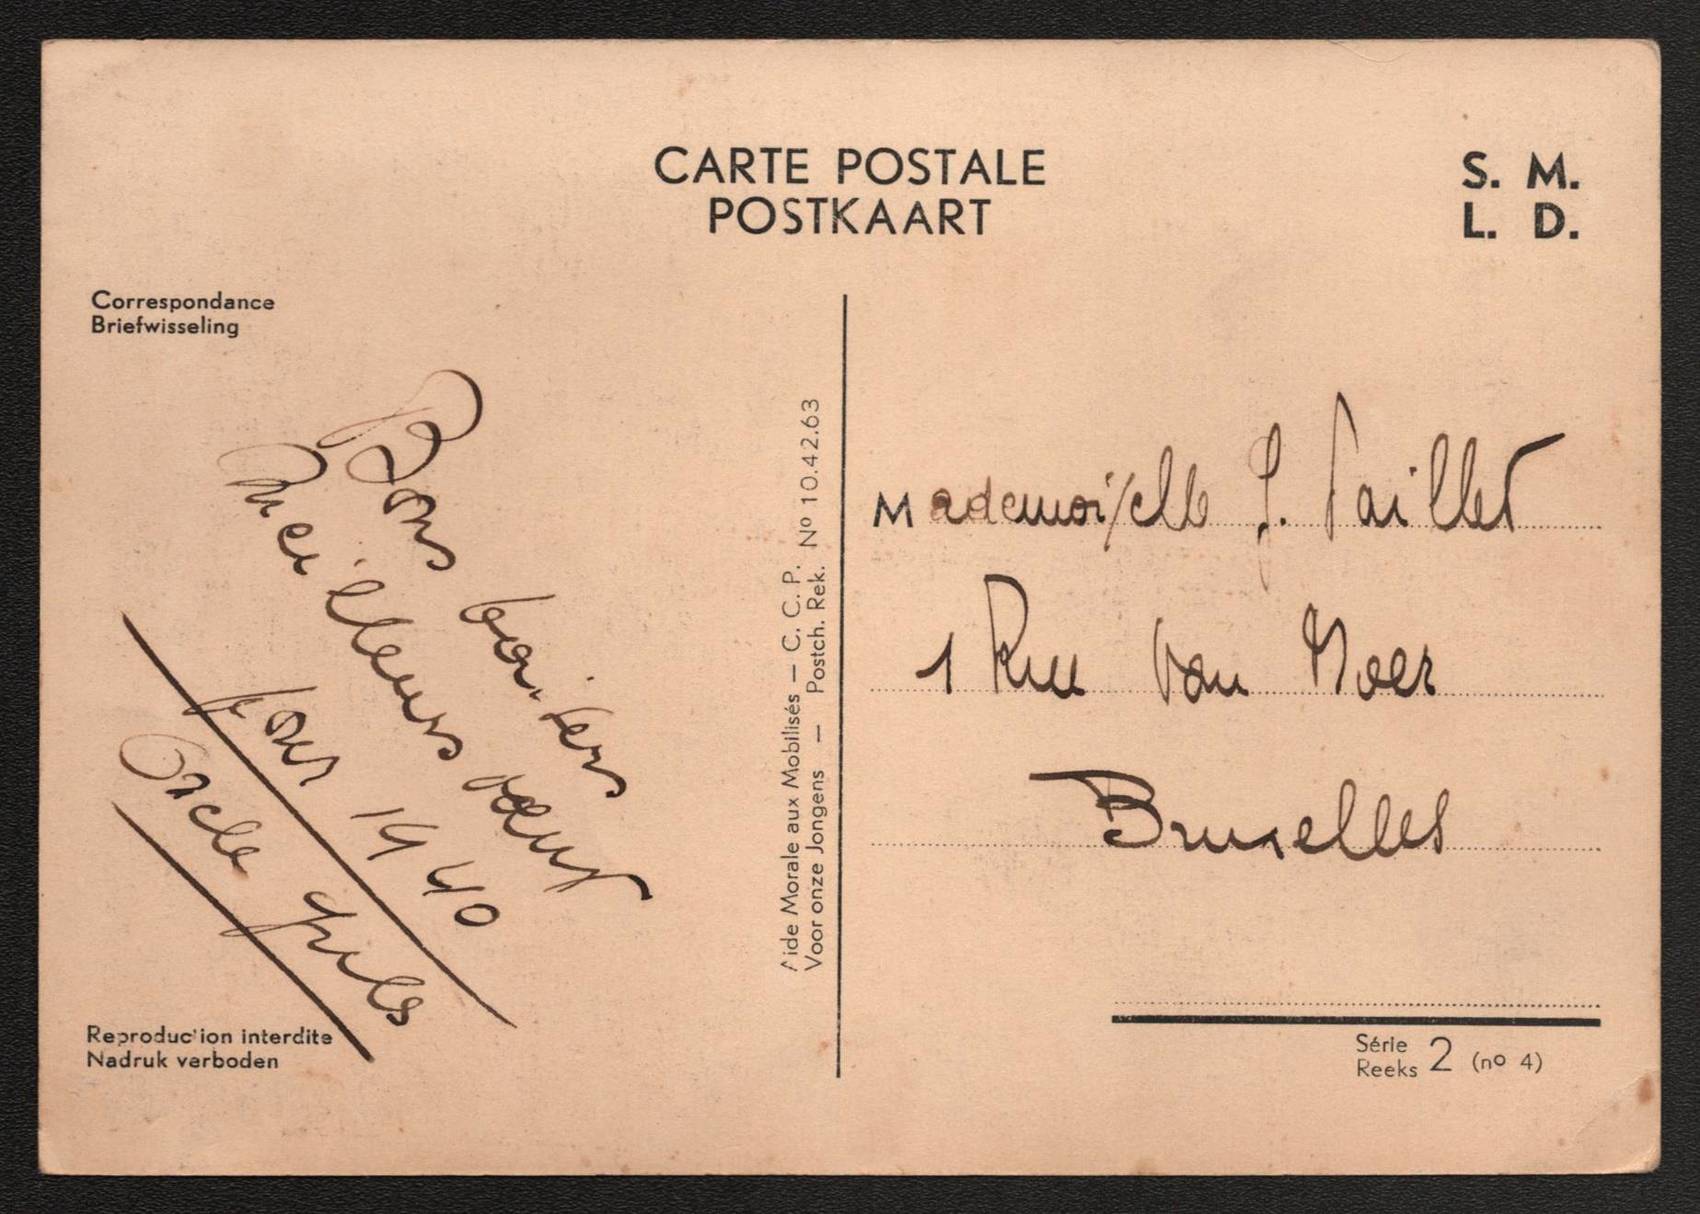 CARTE POSTALE
POSTKAART
S. M.
L. D.
Correspondance
Briefwisseling
Bons baisers
Meilleurs vœux
pour 1940
Oncle Jules
Reproduction interdite
Nadruk verboden
Aide Morale aux Mobilisés — C. C. P. Nº 10.42.63
Voor onze Jongens — Postch. Rek.
Mademoiselle J. Paillet
1 Rue Van Moer
Bruxelles
Série
Reeks 2 (nº 4)